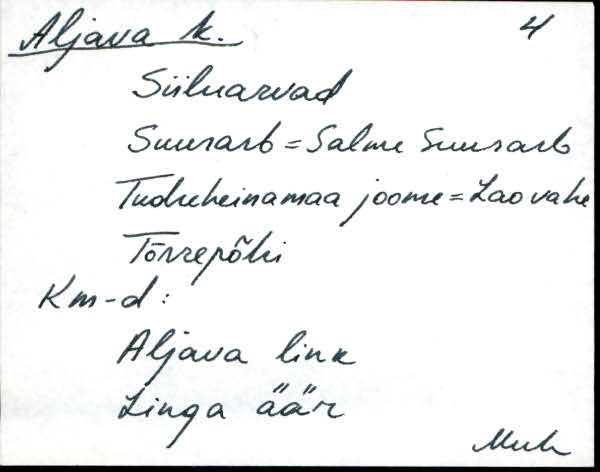 Aljava k. 4
Siiluarvad
Suurarb = Salme Suurarb
Tudruheinamaa joome = Lao vahe
Tõrrepõhi
Km-d:
Aljava link
Linga äär
Muh